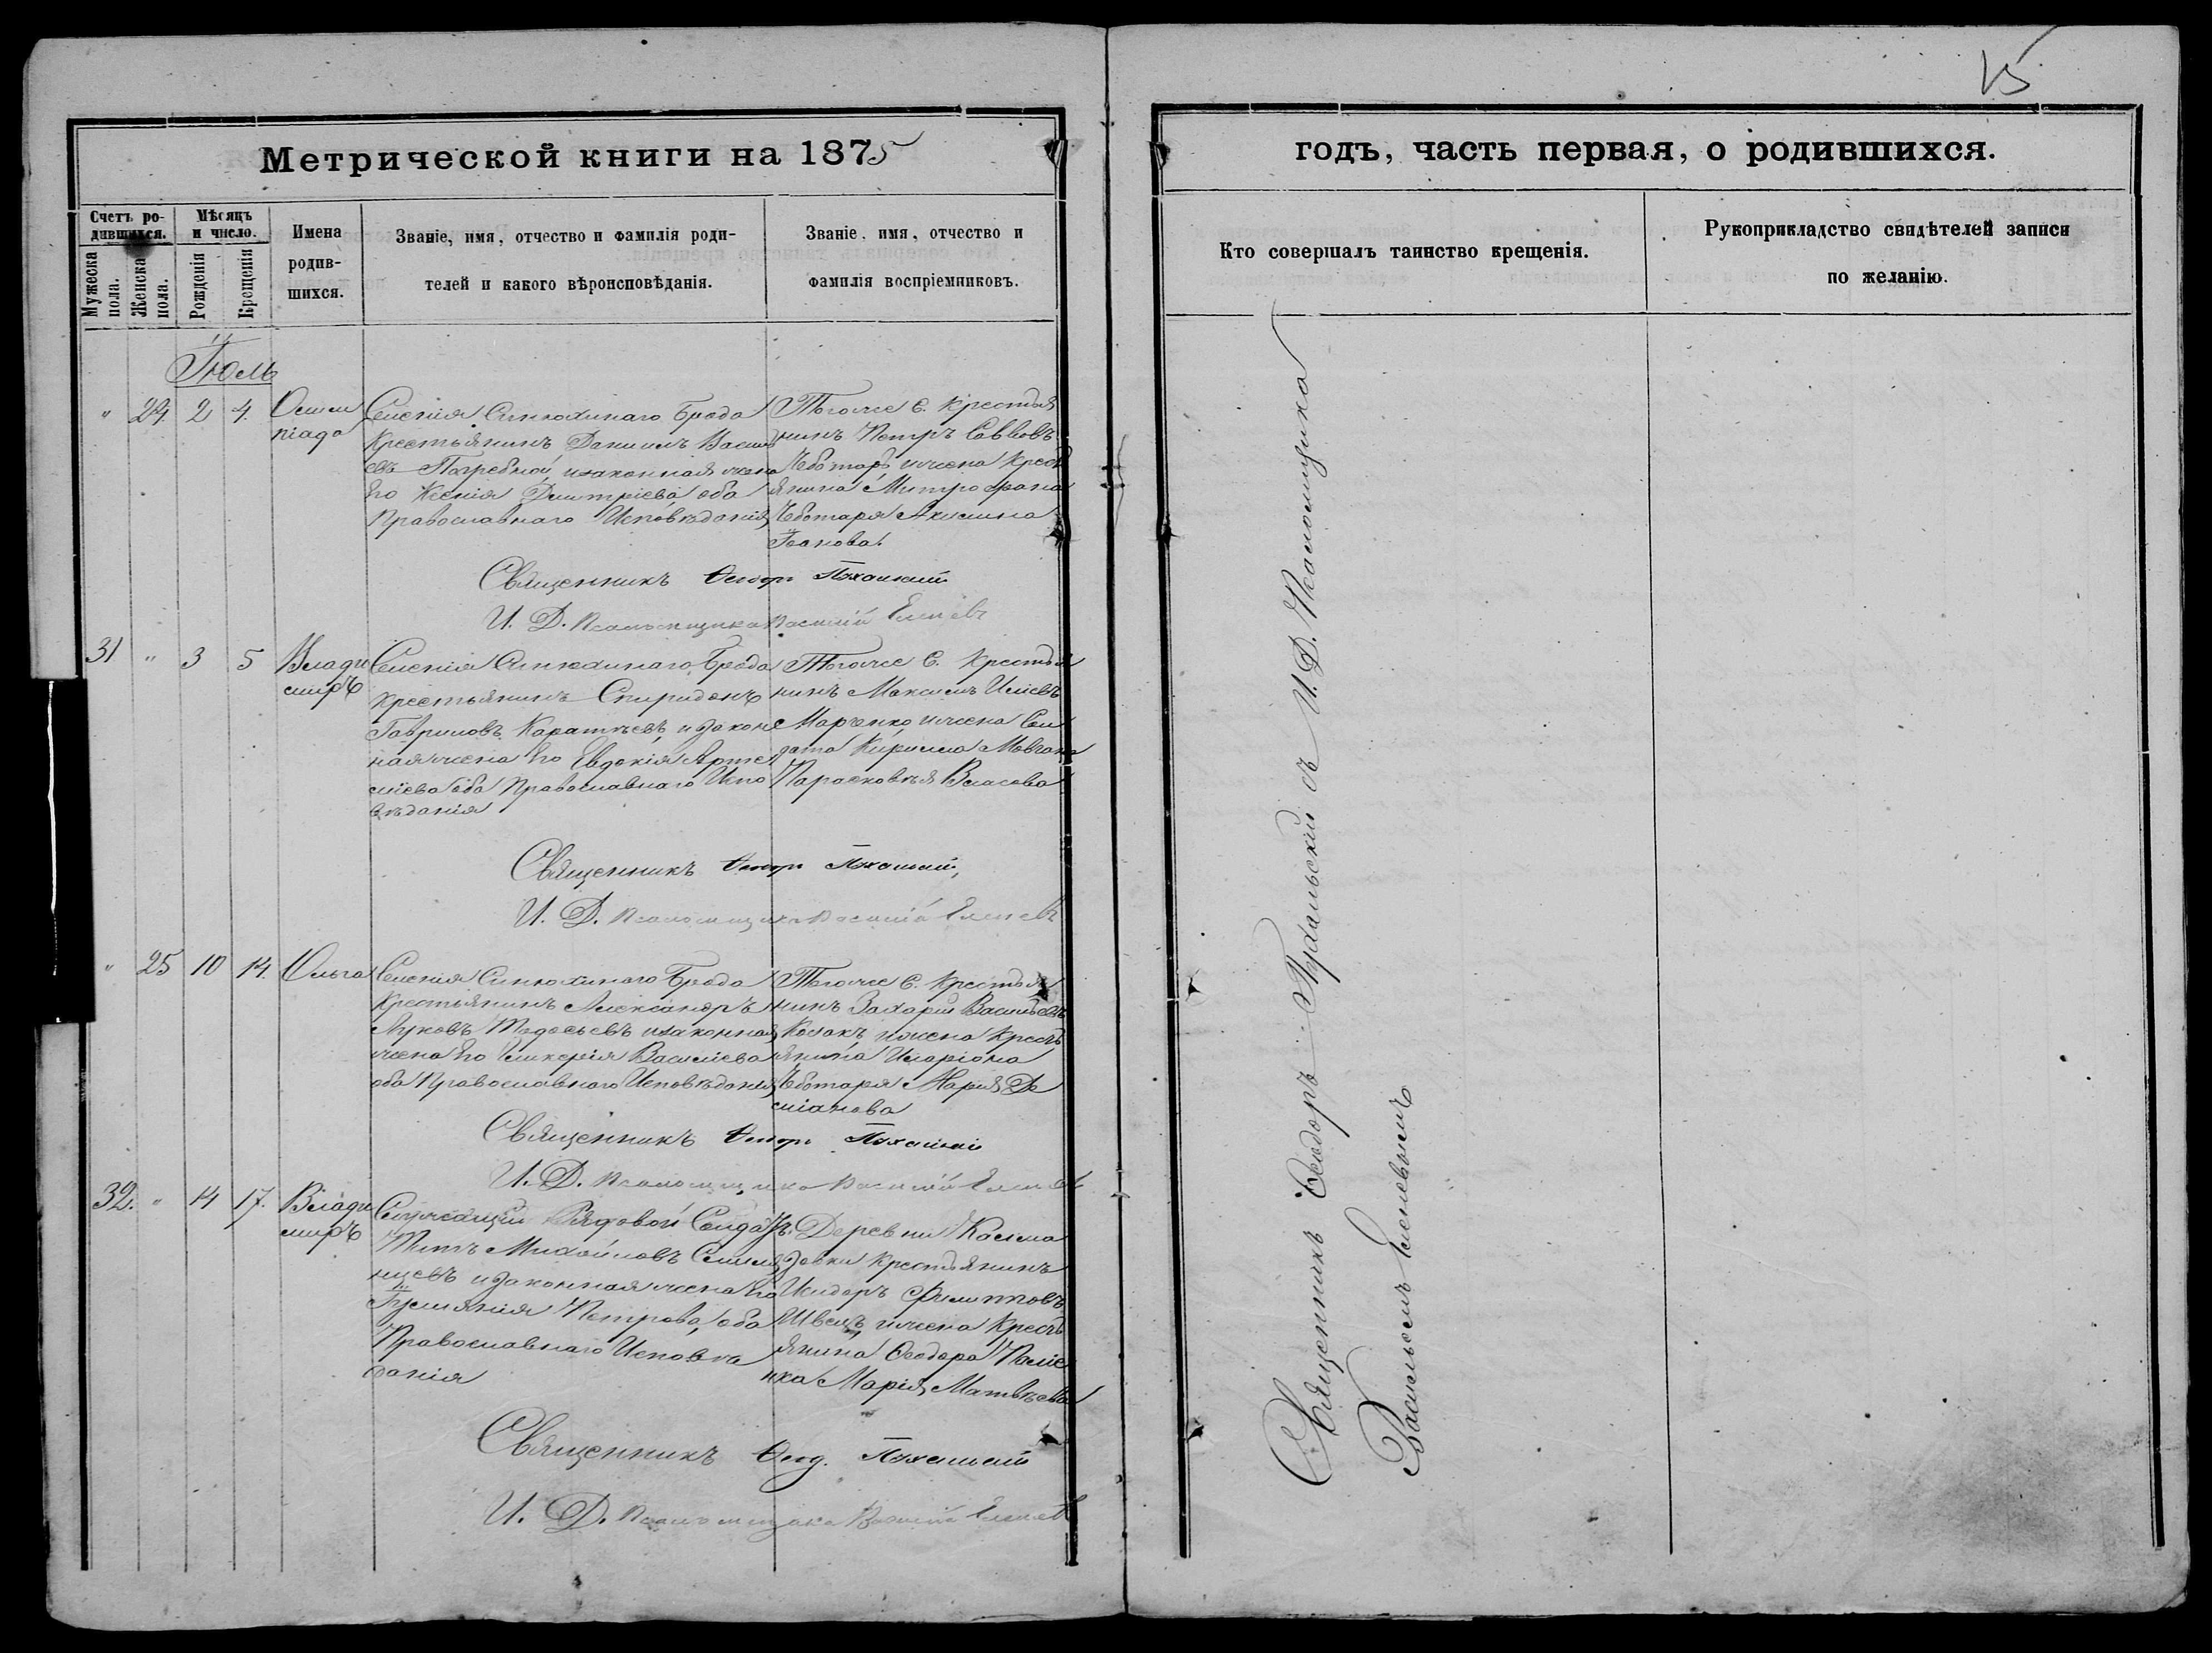 15
Метрической книги на 1875
годъ, часть первая, о родившихся.
Счетъ ро-
дившихся.
Мужеска пола.
Женска пола.
Мѣсяцъ и число.
Рожденія
Крещенія
Имена
родив-
шихся.
Званіе, имя, отчество и фамилія роди-
телей и какого вѣроисповѣданія.
Званіе, имя, отчество и
фамилія воспріемниковъ.
Кто совершалъ таинство крещенія.
Рукоприкладство свидѣтелей записи
по желанію.
Іюль
" 24. 2 4.
Олим
піада
Селенія Синюхинаго Брода
Крестьянинъ Даниилъ Васил
евъ Погребной, изаконная жена
Его Ксенія Дмитріева оба
Православнаго Исповѣданія
Тогоже С. Крестья
нинъ Петръ Саввовъ
Чботарь ижена Крест
янина Митрофана
Чботаря Акилина
Іванова.
Священникъ
И. Д. Псаломщика Василій
31 " 3 5
Влади
миръ
Селенія Синюхинаго Брода
Крестьянинъ Спиридонъ
Гавриловъ и закон
ная жена Его Евдокія Арте
міева оба Православнаго Испо
вѣданія
Тогоже С. Крестья
нинъ Максимъ Иліевъ
Марченко, ижена Сол
дата Кирилла Мовчана
Параскевія Власова
Священникъ
И. Д. Псаломщика Василій
" 25 10 14.
Ольга
Селенія Синюхинаго Брода
Крестьянинъ Александръ
Луковъ изаконная
жена Его Гликерія Василіева
оба Православнаго Исповѣданія
Тогоже С. Крестья
нинъ Захарій Васильевъ
Козакъ ижена Крест
янина Иларіона
Чботаря Марія Да
міанова
Священникъ
И. Д. Псаломщика Василій
32. " 14 17.
Влади
миръ
Служащій Рядовой Солдатъ
Титъ Михайловъ
и законная жена Его
Петрова, оба
Православнаго Исповѣ
данія
Деревни
Крестьянинъ
Исидоръ Филипповъ
Швецъ ижена Крест
янина Ѳеодора
Марія Матвѣева
Священникъ
И. Д. Псаломщика Василій
Священникъ Ѳеодоръ съ И. Д. Псаломщика
Васильемъ